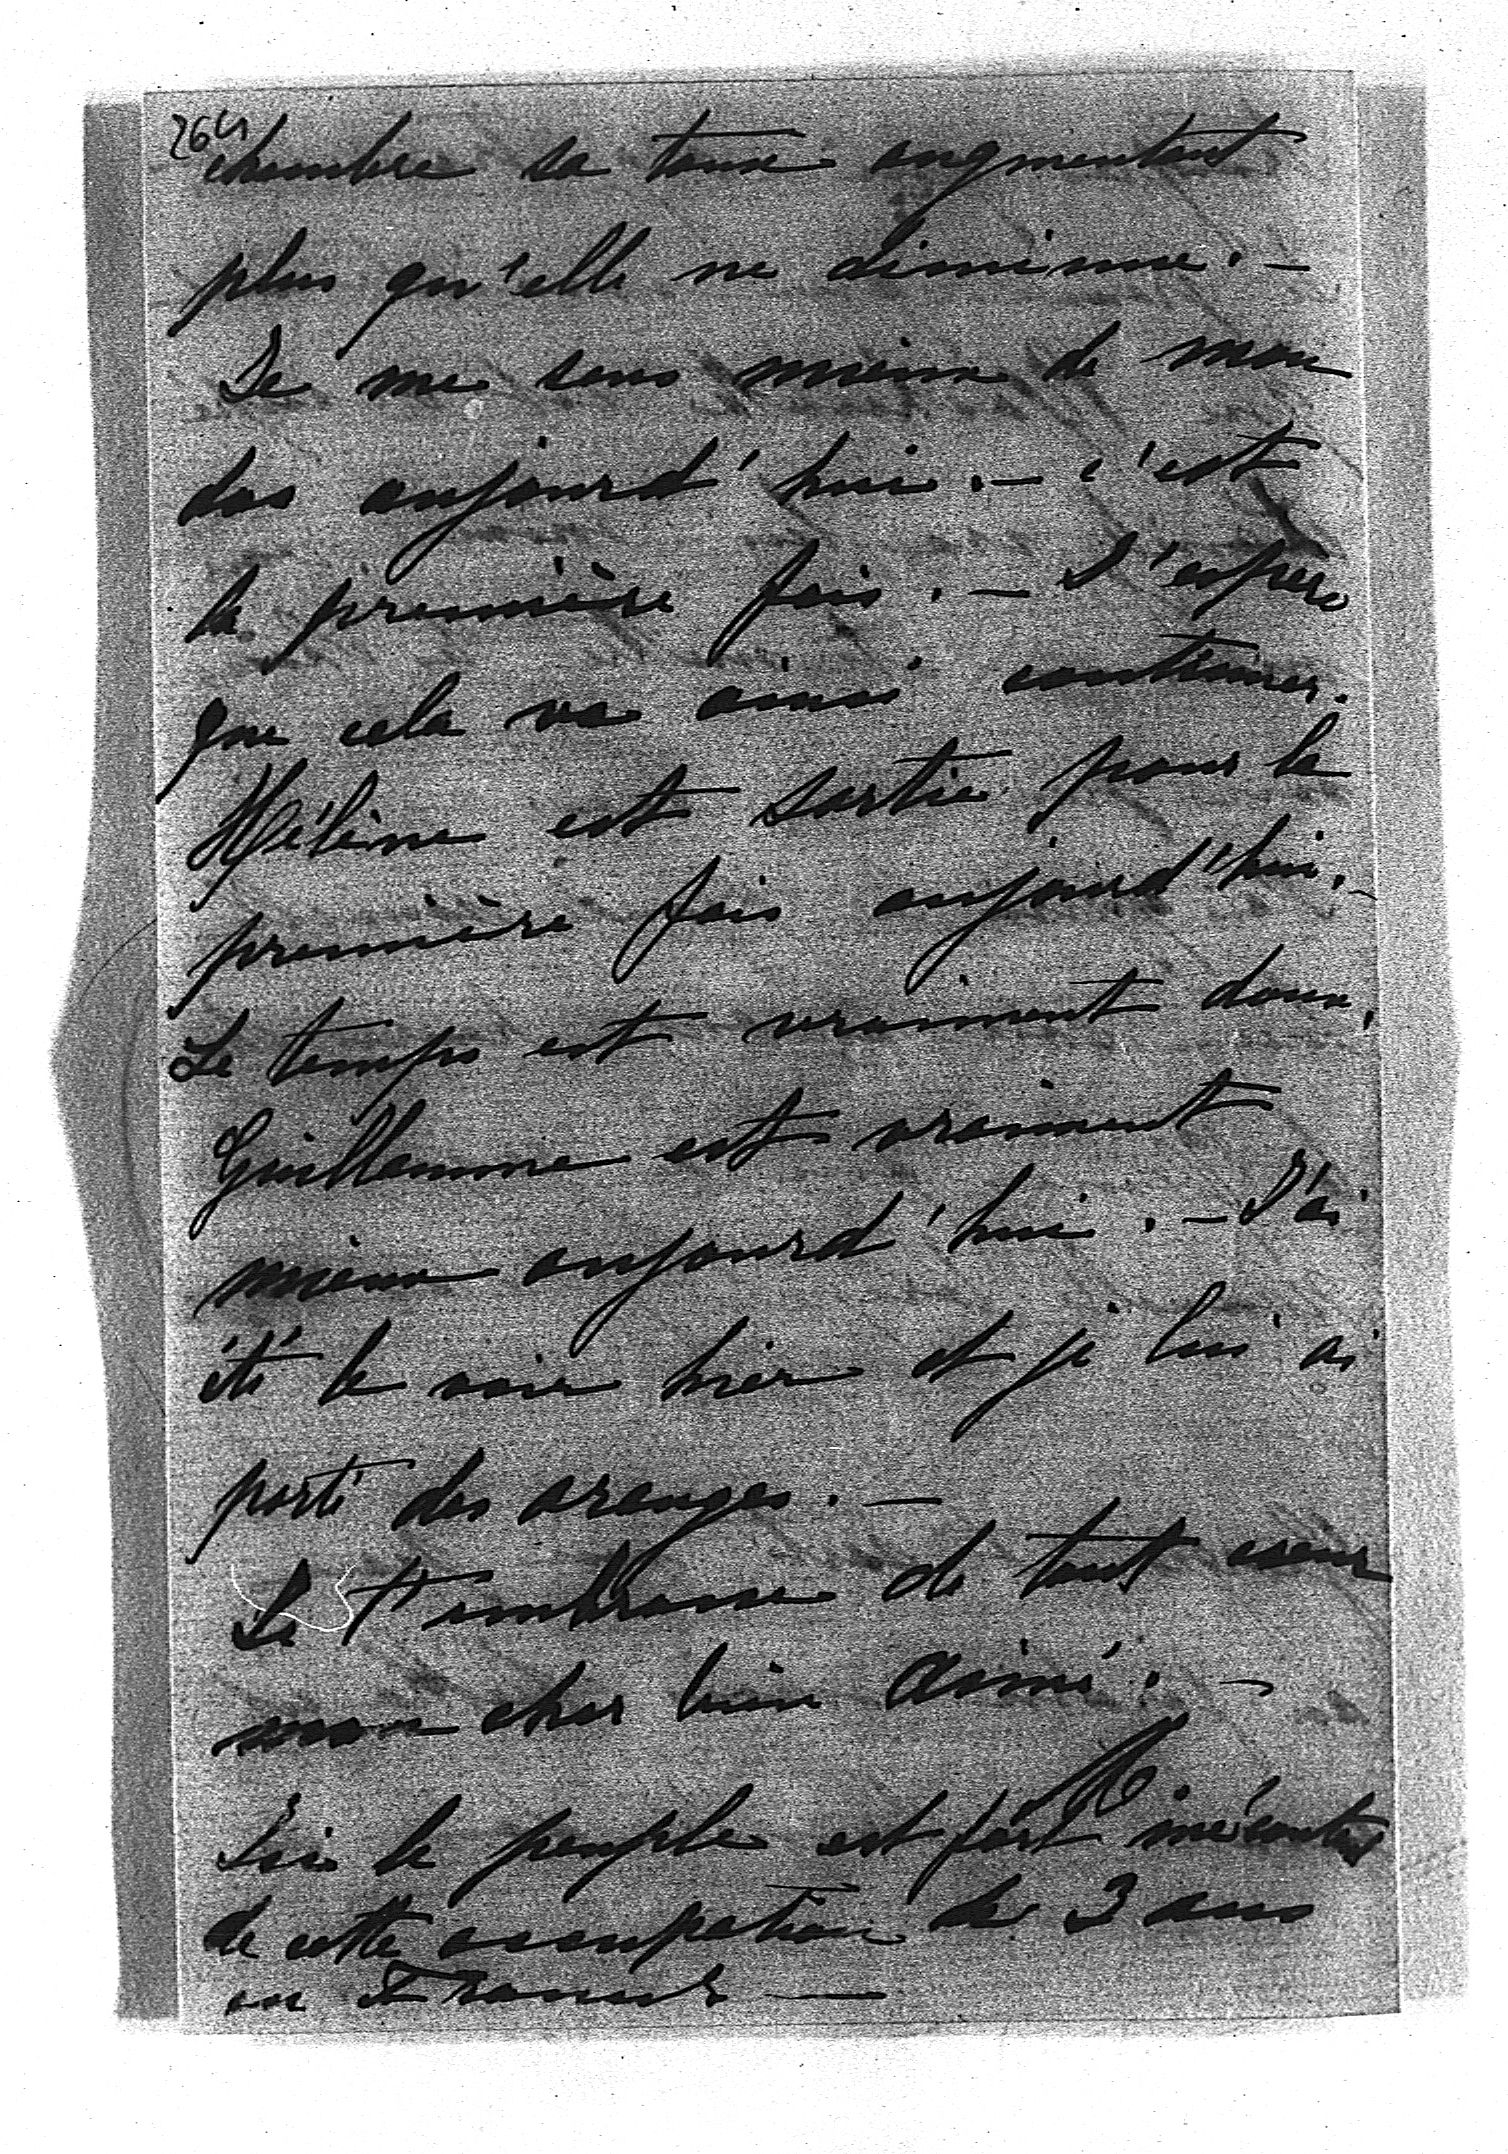 264
chambre sa toux augmentant
plus qu'elle ne diminue. —
Je me sens mieux de mon
dos aujourd'hui. — c'est
la première fois. — J'espère
que cela va ainsi continuer.
Hélène est sortie pour la
première fois aujourd'hui. —
Le temps est vraiment doux,
Guillaume est vraiment
mieux aujourd'hui. — J'ai
été le voir hier et je lui ai
porté des oranges. —
Je t'embrasse de tout coeur
mon cher bien Aimé. —
Ici le peuple est fort mécontent
de cette occupation de 3 ans
en France —